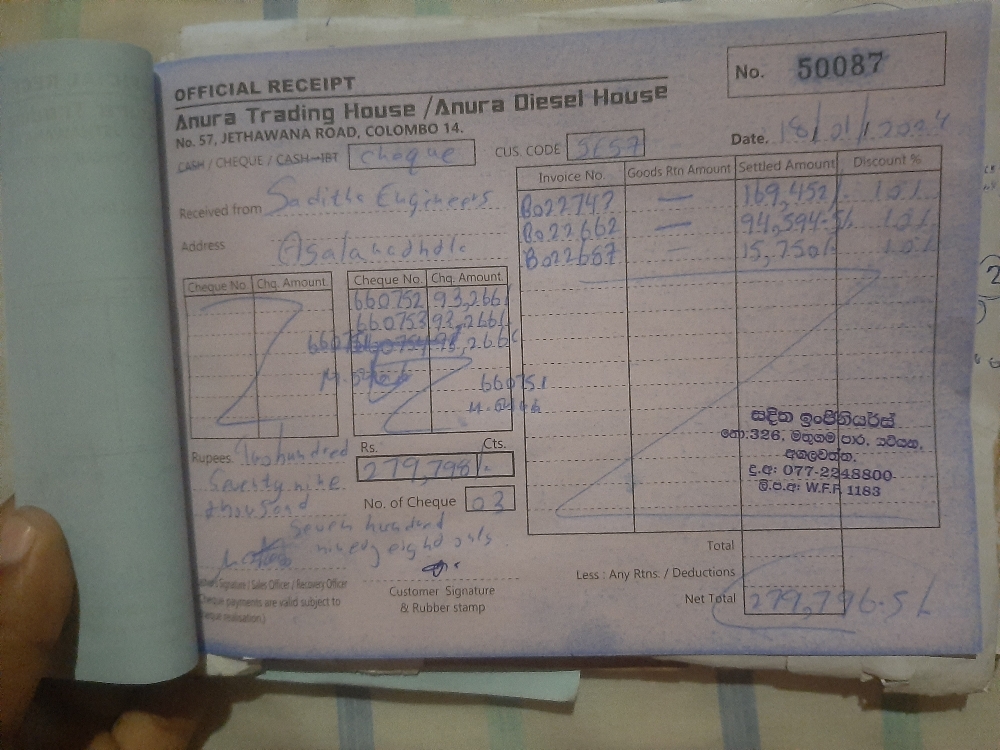 OFFICIAL RECEIPT
No. 50087
Anura Trading House /Anura Diesel House
No. 57, JETHAWANA ROAD, COLOMBO 14.
Date. 18/01/2024
CASH / CHEQUE / CASH-IBT cheque
CUS. CODE
Invoice No. Goods Rtn Amount Settled Amount Discount %
Bo22747 — 169,452/. 10%
Bo22662 — 94,594.51 10%
Bo22667 — 15,750/ 10%
Received from Saditha Engineers
Address
Cheque No. Chq. Amount
Cheque No. Chq. Amount
660752 93,266/
660753 93,266/
660751
Rupees. Two hundred
Seventy nine
thousand
Seven hundred
ninety eight only
Rs. Cts.
279,798/.
No. of Cheque 03
සදිත ඉංජිනියර්ස්
නො:326, මතුගම පාර,
අගලවත්ත.
දු.අ: 077-2248800
ලි.ප.අ: W.F.F. 1183
Total
Less : Any Rtns. / Deductions
Net Total 279,796.51
Signature / Sales Officer / Recovery Officer
Cheque payments are valid subject to
cheque realisation.)
Customer Signature
& Rubber stamp